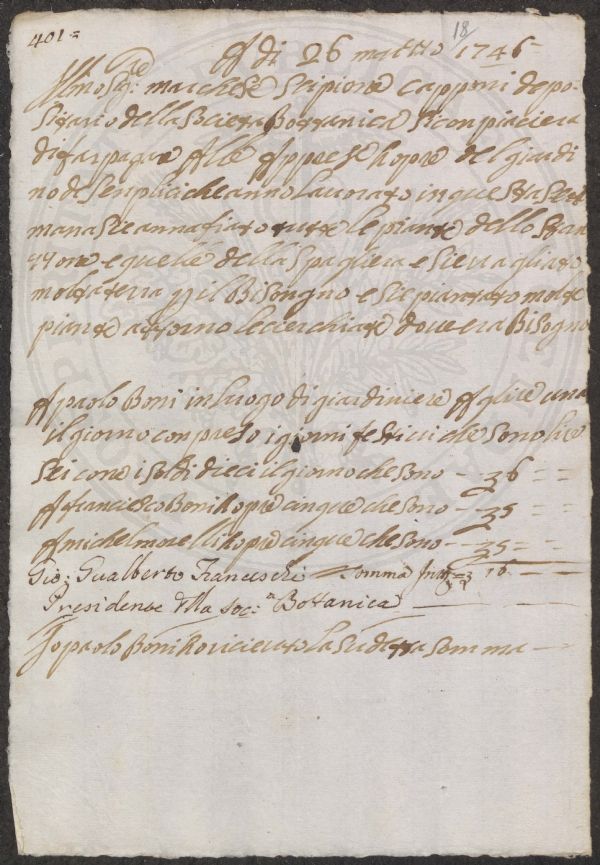 401=
18
A di 26 marzo 1746
Illmo Sig:re marchese Scipione Capponi depo-
sitario della Societa Bottanica si conpiacera
di far pagare Alle Apprese hopre del giardi
no de senplici che anno lavorato in questa set
mana si e annafiato tutte le piante dello stan
zone e quelle della Spagliera e si e vagliato
molta terra p il Bisongno e si e piantato molte
piante attorno le cerchiate dove era Bisogno
A paolo Boni in luogo di giardiniere A lire una
il giorno conpreso i giorni festivi che sono lire
sei con i soldi dieci il giorno che sono - 36 = =
A francesco Boni hopre cinque che sono - 35 = =
A michel morelli hopre cinque che sono - 35 = =
Gio: Gualberto Franceschi Somma 16
Presidente della Soc:a Bottanica
Io paolo Boni ho ricievuto la sudetta somma